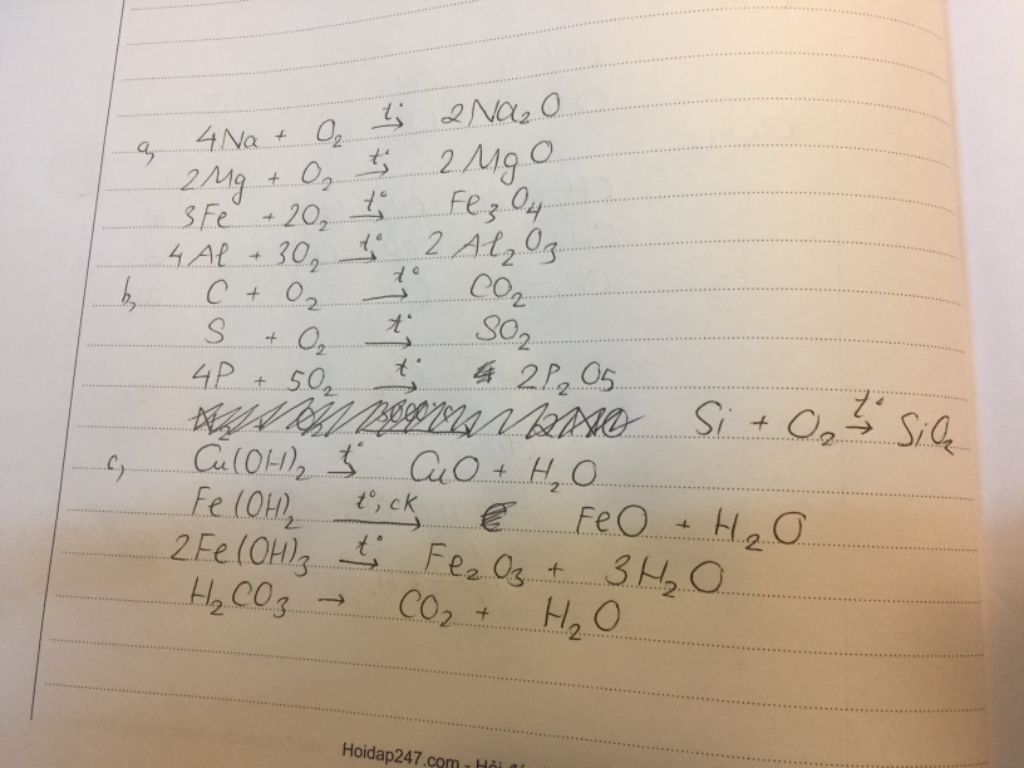 a, 4Na + O₂ →t° 2Na₂O
2Mg + O₂ →t° 2MgO
3Fe + 2O₂ →t° Fe₃O₄
4Al + 3O₂ →t° 2Al₂O₃
b, C + O₂ →t° CO₂
S + O₂ →t° SO₂
4P + 5O₂ →t° 2P₂O5
Si + O₂ →t° SiO₂
c, Cu(OH)₂ →t° CuO + H₂O
Fe(OH)₂ →t°, ck FeO + H₂O
2Fe(OH)₃ →t° Fe₂O₃ + 3H₂O
H₂CO₃ → CO₂ + H₂O
Hoidap247.com - Hỏi